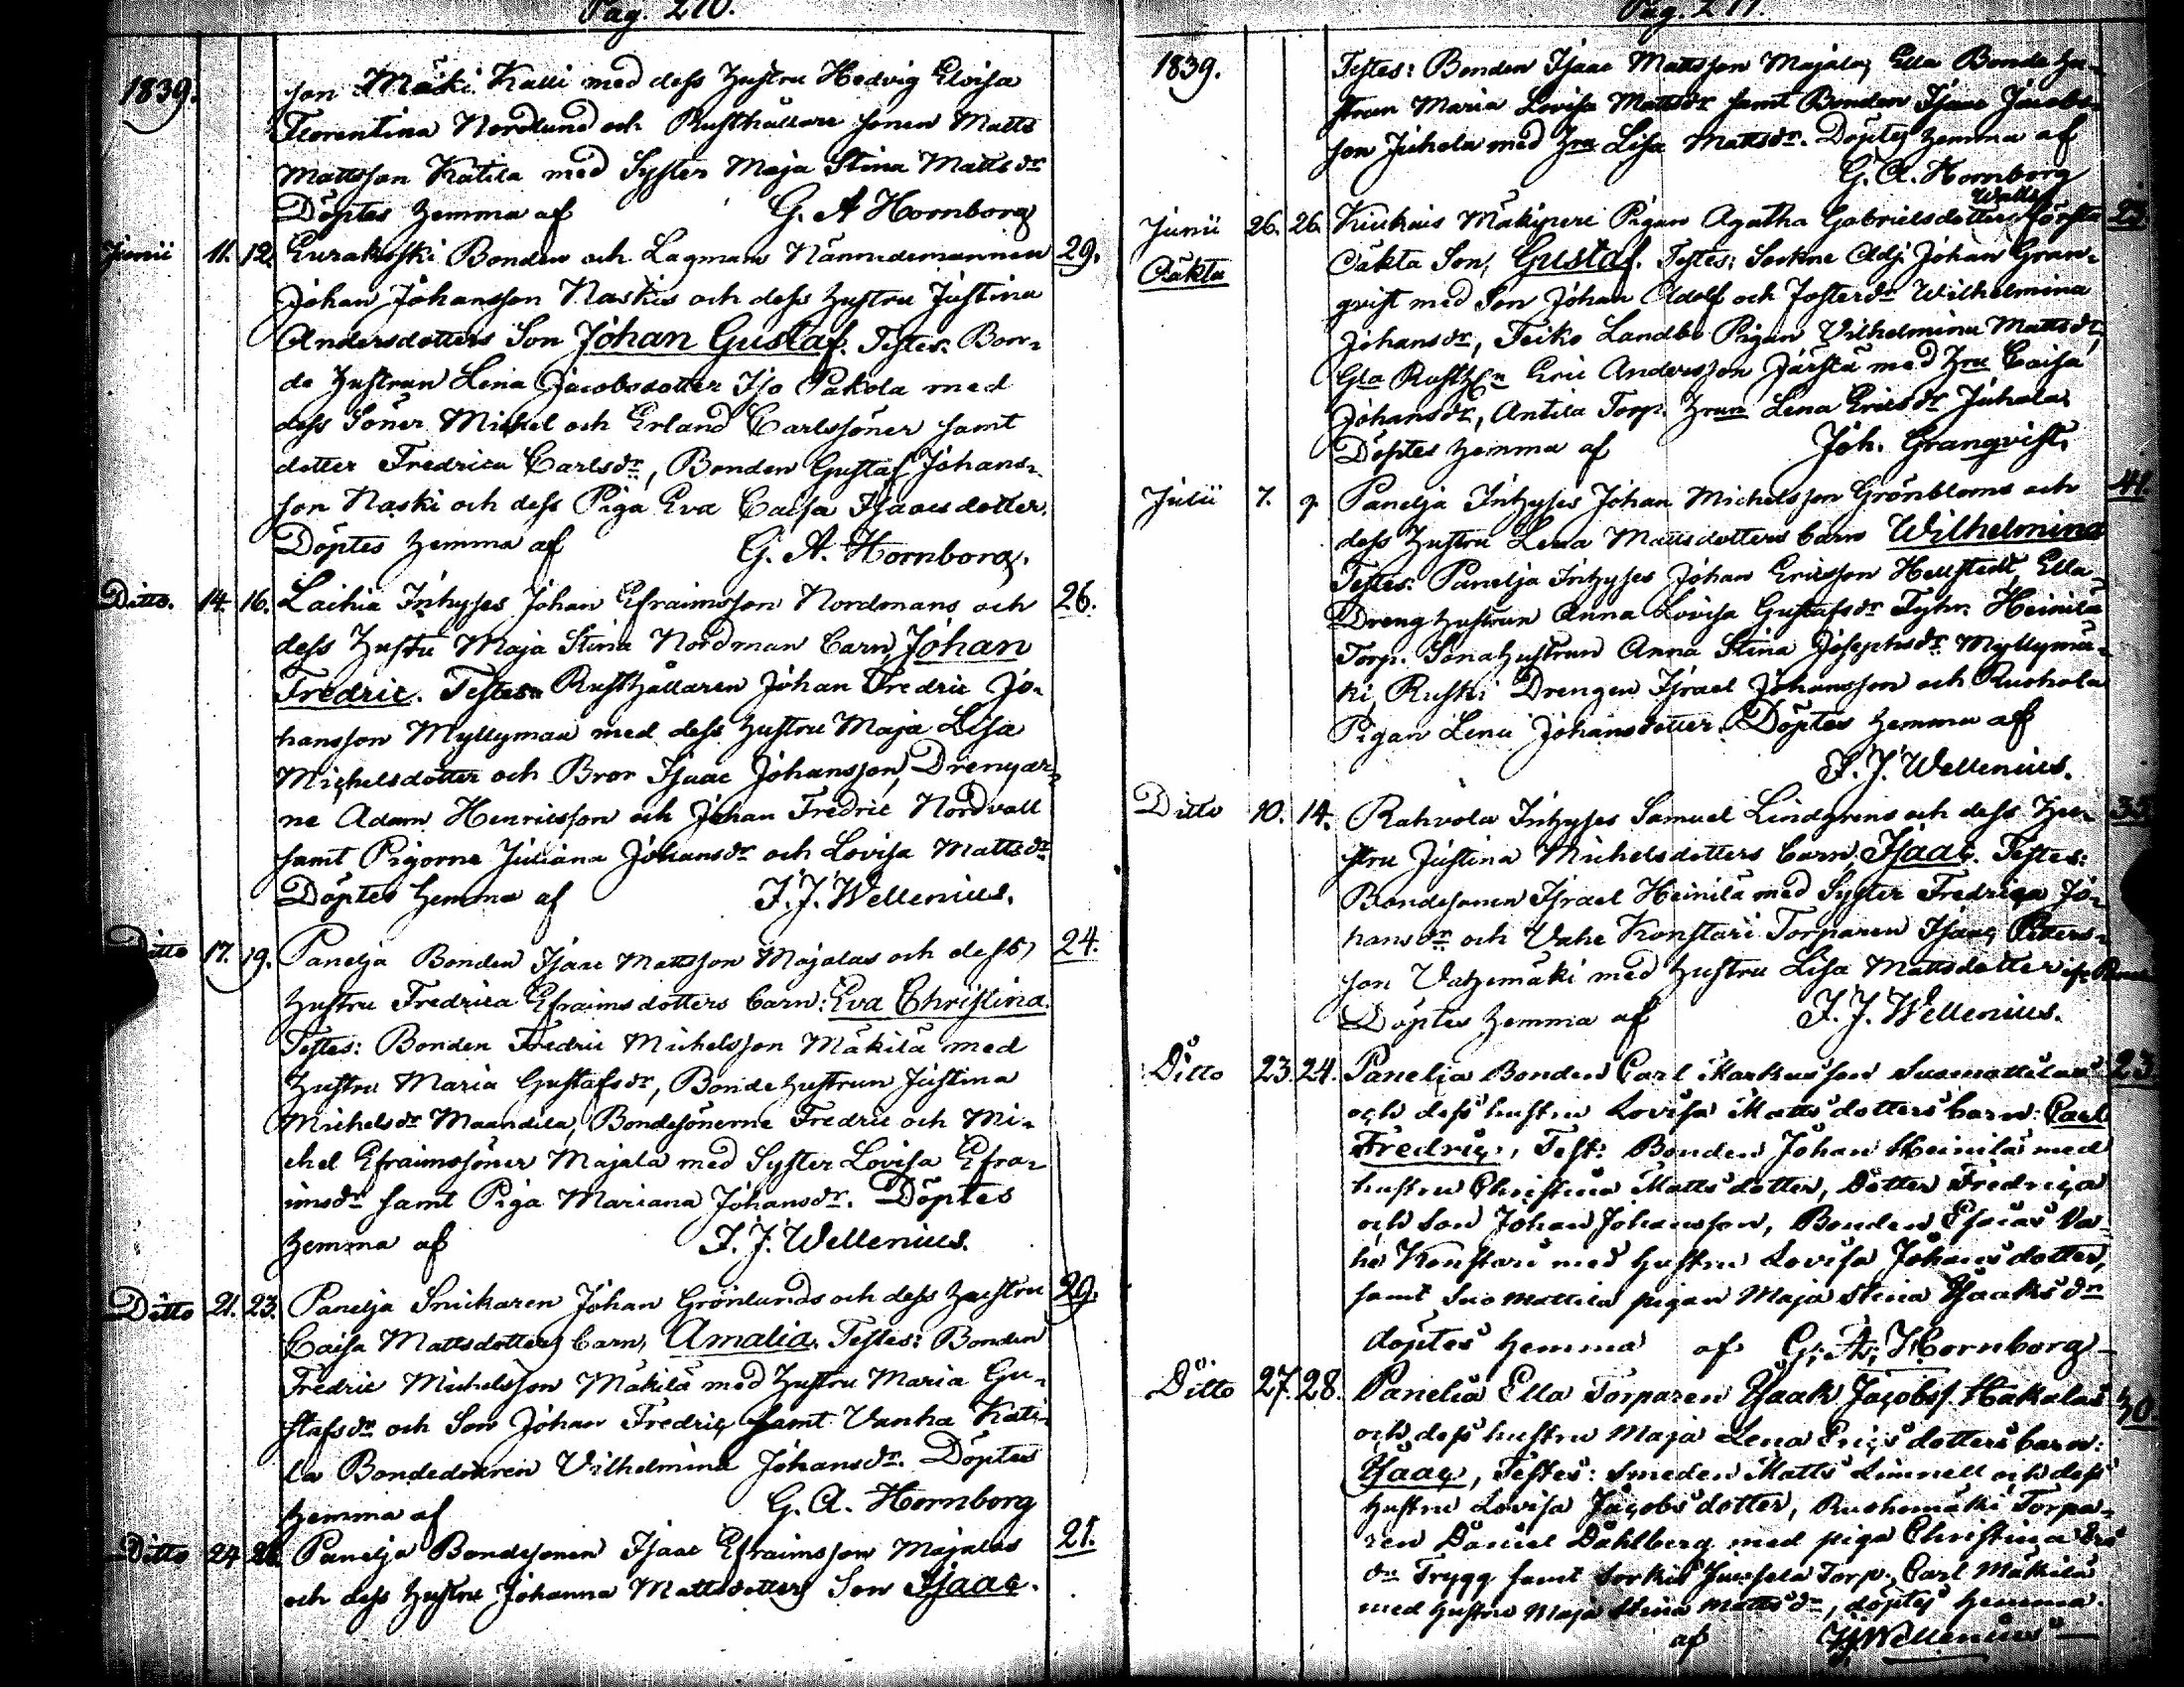 Pag. 210.
1839.
son Mäki Kalli med dess Hustru Hedvig Elvisa
Florentina Nordlund och Rusthållare sonen Matts
Mattsson Katila med Syster Maja Stina Mattsdr
Döptes hemma af G. A Hornborg
Junii 11. 12. Eurakoski Bonden och Lagmans Nämndemannen 29.
Johan Johansson Naskis och dess Hustru Justina
Andersdotters Son Johan Gustaf. Testes: Bon-
de Hustrun Lena Jacobsdotter Iso Pakola med
dess Söner Mickel och Erland Carlssöner samt
dotter Fredrica Carlsdr, Bonden Gustaf Johans-
son Naski och dess Piga Eva Caisa Isaacsdotter.
Döptes hemma af G. A. Hornborg.
Ditto. 14. 16. Laihia Inhyses Johan Efraimsson Nordmans och 26.
dess Hustru Maja Stina Nordman barn Johan
Fredric. Testes: Rusthållaren Johan Fredric Jo-
hansson Myllymaa med dess Hustru Maja Lisa
Michelsdotter och Bror Isaac Johansson, Drengar-
ne Adam Henricsson och Johan Fredric Nordvall
samt Pigorne Juliana Johansdr och Lovisa Mattsdr
Döptes hemma af I. J. Wellenius.
Ditto 17. 19. Panelja Bonden Isaac Mattsson Majalas och dess 24.
Hustru Fredrica Efraimsdotters barn: Eva Christina.
Testes: Bonden Fredric Michelsson Mäkilä med
Hustru Maria Gustafsdr, Bondehustrun Justina
Michelsdr Maandila, Bondesönerne Fredric och Mi-
chel Efraimssöner Majala med Syster Lovisa Efra-
imsdr samt Piga Mariana Johansdr. Döptes
hemma af I. J. Wellenius.
Ditto 21. 23. Panelja Snickaren Johan Grönlunds och dess Hustru 29.
Caisa Mattsdotters barn, Amalia. Testes: Bonden
Fredric Michelsson Mäkilä med Hustru Maria Gu-
stafsdr och Son Johan Fredric, samt Vanha Kati-
la Bondedottren Vilhelmina Johansdr. Döptes
hemma af G. A. Hornborg
Ditto 24 Panelja Bondesonen Isaac Efraimsson Majalas 21.
och dess Hustru Johanna Mattsdotters Son Isaac.
Pag. 211.
1839.
Testes: Bonden Isaac Mattsson Majala, Ella Bonde Hu-
strun Maria Lovisa Mattsdr samt Bonden Isaac Jacobs-
son Juhola med Hru Lisa Mattsdr. Döptes hemma af
G. A. Hornborg
Junii 26. 26. Kiukais Mäkiperi Pigan Agatha Gabrielsdotters första 23.
Oäkta Oäkta Son, Gustaf. Testes: Sockne Adj. Johan Gran-
qvist med Son Johan Adolf och Fosterdr Wilhelmina
Johansdr, Teiko Landbo Pigan Vilhelmina Mattsdr,
Eric Andersson Järstä med Hru Caisa
Johansdr, Antila Torp. Hrun Lena Ericsdr Juhala,
Döptes hemma af Joh. Granqvist.
Julii 7. 9. Panelja Inhyses Johan Michelsson Grönbloms och 41.
dess Hustru Lena Mattsdotters barn Wilhelmina
Testes: Panelja Inhyses Johan Ericsson Hellstedt, Ella
Dreng Hustrun Anna Lovisa Gustafsdr Heinilä
Torp. Sonahustrun Anna Stina Josephsdr Myllymä-
ki, Ruski Drengen Israel Johansson och Ruohola
Pigan Lena Johansdotter. Döptes hemma af
I. J. Wellenius.
Ditto 10. 14. Rahvola Inhyses Samuel Lindgrens och dess Hu- 35
stru Justina Michelsdotters barn, Isaac. Testes:
Bondesonen Israel Heinilä med Syster Fredrica Jo-
hansdr och Vahe Konstari Torparen Isaac Peters-
son Vahemäki med Hustru Lisa Mattsdotter
Döptes hemma af I. J. Wellenius.
Ditto 23. 24. Panelia Bonden Carl Markusson Suomattilas 23.
och dess hustru Lovisa Mattsdotters barn: Carl
Fredric, Test: Bonden Johan Heinilä med
hustru Christina Mattsdotter, Dotter Fredrica
och Son Johan Johansson, Bonden Esaias Va-
he Konstari med hustru Lovisa Johansdotter,
samt Suomattila pigan Maja Stina Isaaksdr
döptes hemma af G. A. Hornborg
Ditto 27. 28. Panelia Ella Torparen Isaak Jacobss. Hakalas 30
och dess hustru Maja Lena Ericsdotters barn:
Isaac, Testes: Smeden Matts Linnell och dess
Hustru Lovisa Jacobsdotter, Ruohomäki Torpa-
ren Daniel Dahlberg med piga Christina
dr Trygg samt Sorkis Torp. Carl Mäkilä
med hustru Maja Stina Mattsdr, döptes hemma
af IJWellenius